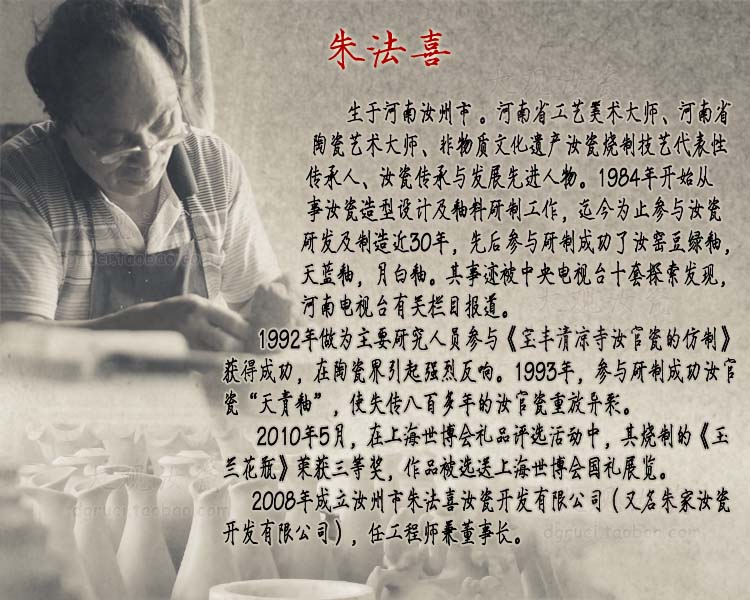 朱法喜
生于河南汝州市。河南省工艺美术大师、河南省
陶瓷艺术大师、非物质文化遗产汝瓷烧制技艺代表性
传承人、汝瓷传承与发展先进人物。1984年开始从
事汝瓷造型设计及釉料研制工作，迄今为止参与汝瓷
研发及制造近30年，先后参与研制成功了汝窑豆绿釉，
天蓝釉，月白釉。其事迹被中央电视台十套探索发现，
河南电视台有关栏目报道。
1992年做为主要研究人员参与《宝丰清凉寺汝官瓷的仿制》
获得成功，在陶瓷界引起强烈反响。1993年，参与研制成功汝官
瓷“天青釉”，使失传八百多年的汝官瓷重放异彩。
2010年5月，在上海世博会礼品评选活动中，其烧制的《玉
兰花瓶》荣获三等奖，作品被选送上海世博会国礼展览。
2008年成立汝州市朱法喜汝瓷开发有限公司（又名朱家汝瓷
开发有限公司），任工程师兼董事长。
dgruci.taobao.com
dgruci.taobao.com
dgruci.taobao.com